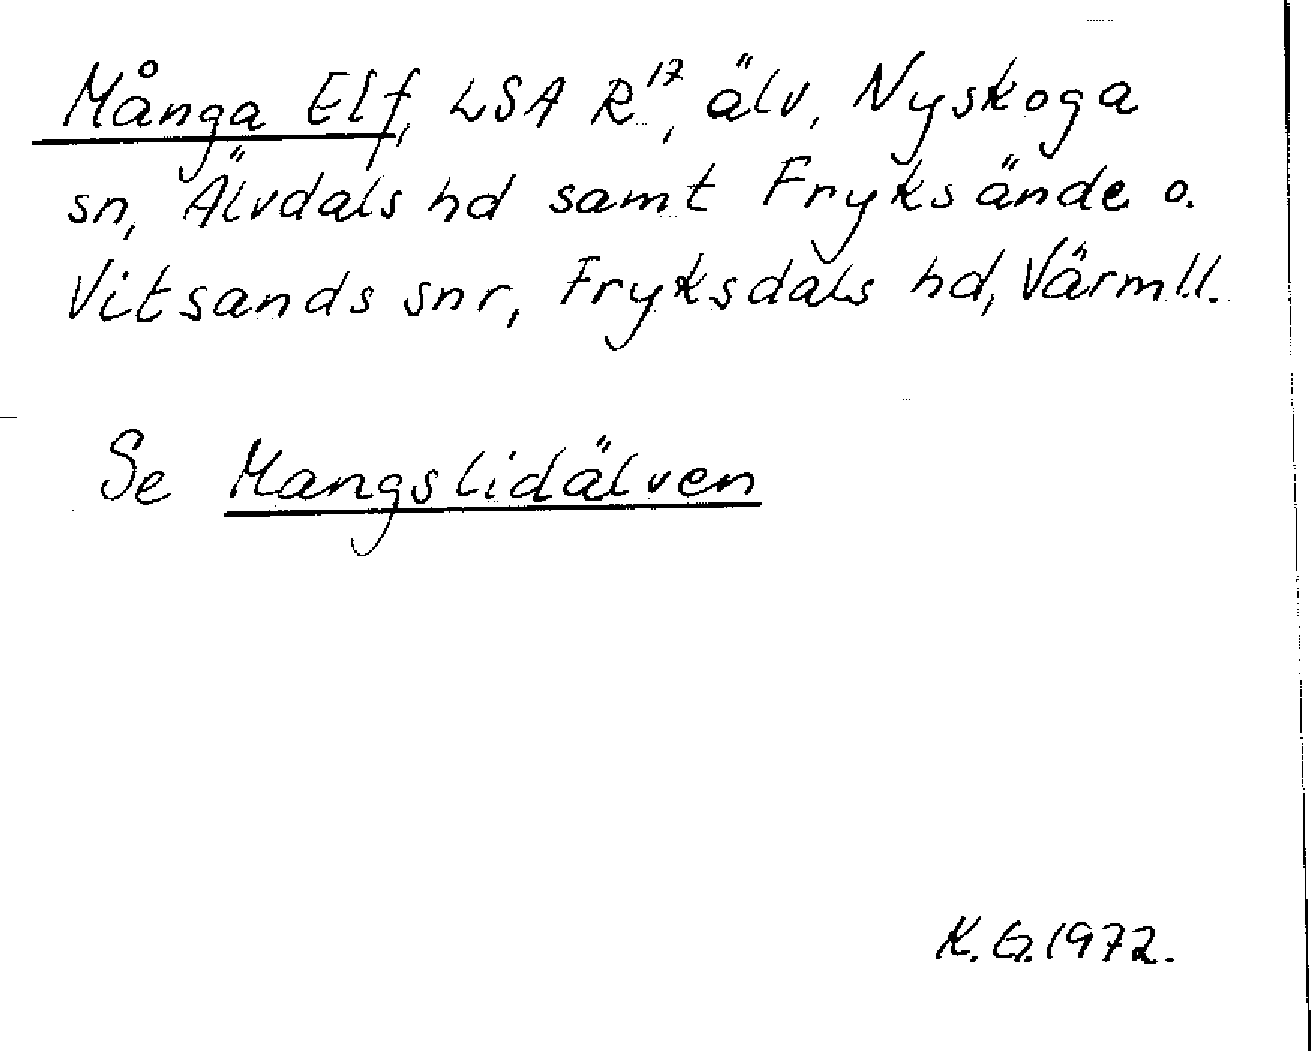 Många Elf, LSA R¹⁷, älv, Nyskoga
sn, Älvdals hd samt Fryksände o.
Vitsands snr, Fryksdals hd, Värmll.
Se Mangslidälven
K.G.1972.